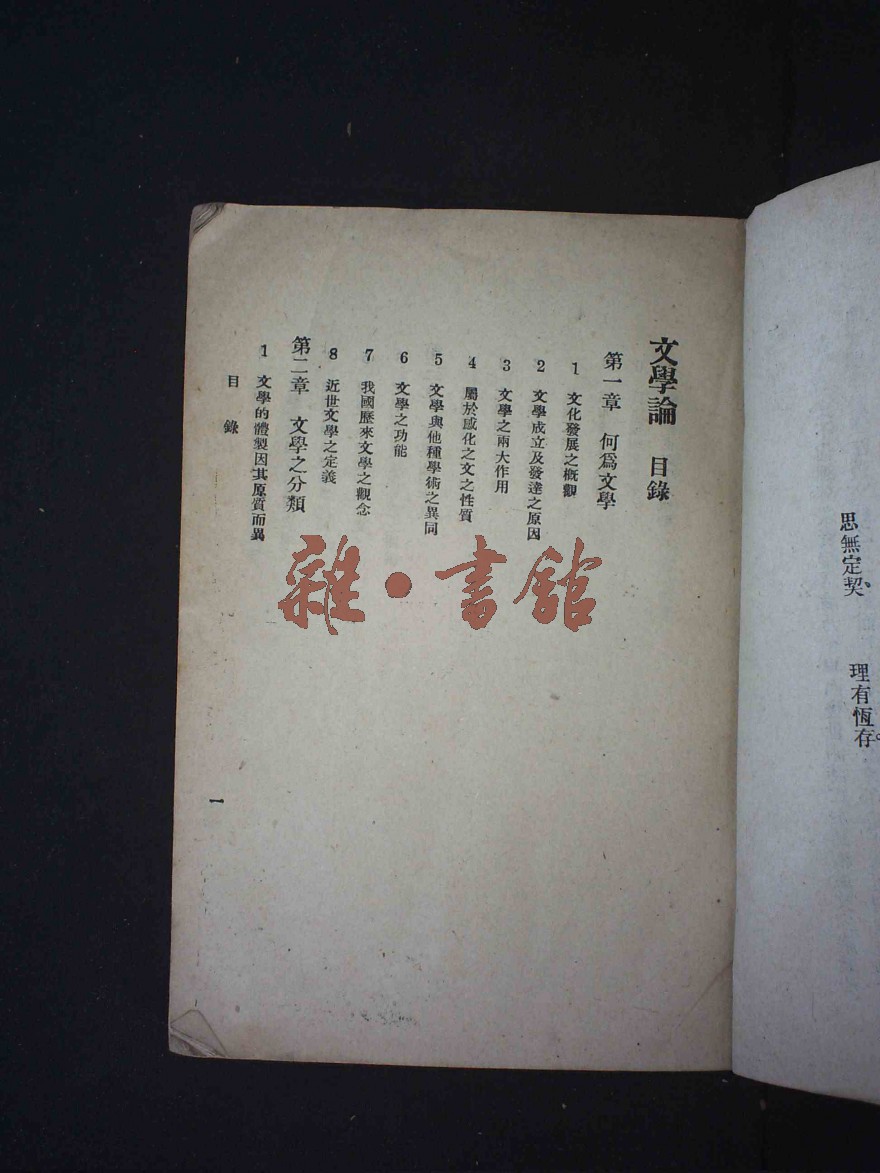 思無定契、
理有恆存。
文學論 目錄
第一章 何爲文學
1 文化發展之概觀
2 文學成立及發達之原因
3 文學之兩大作用
4 屬於感化之文之性質
5 文學與他種學術之異同
6 文學之功能
7 我國歷來文學之觀念
8 近世文學之定義
第二章 文學之分類
1 文學的體製因其原質而異
目錄
一
雜·書館